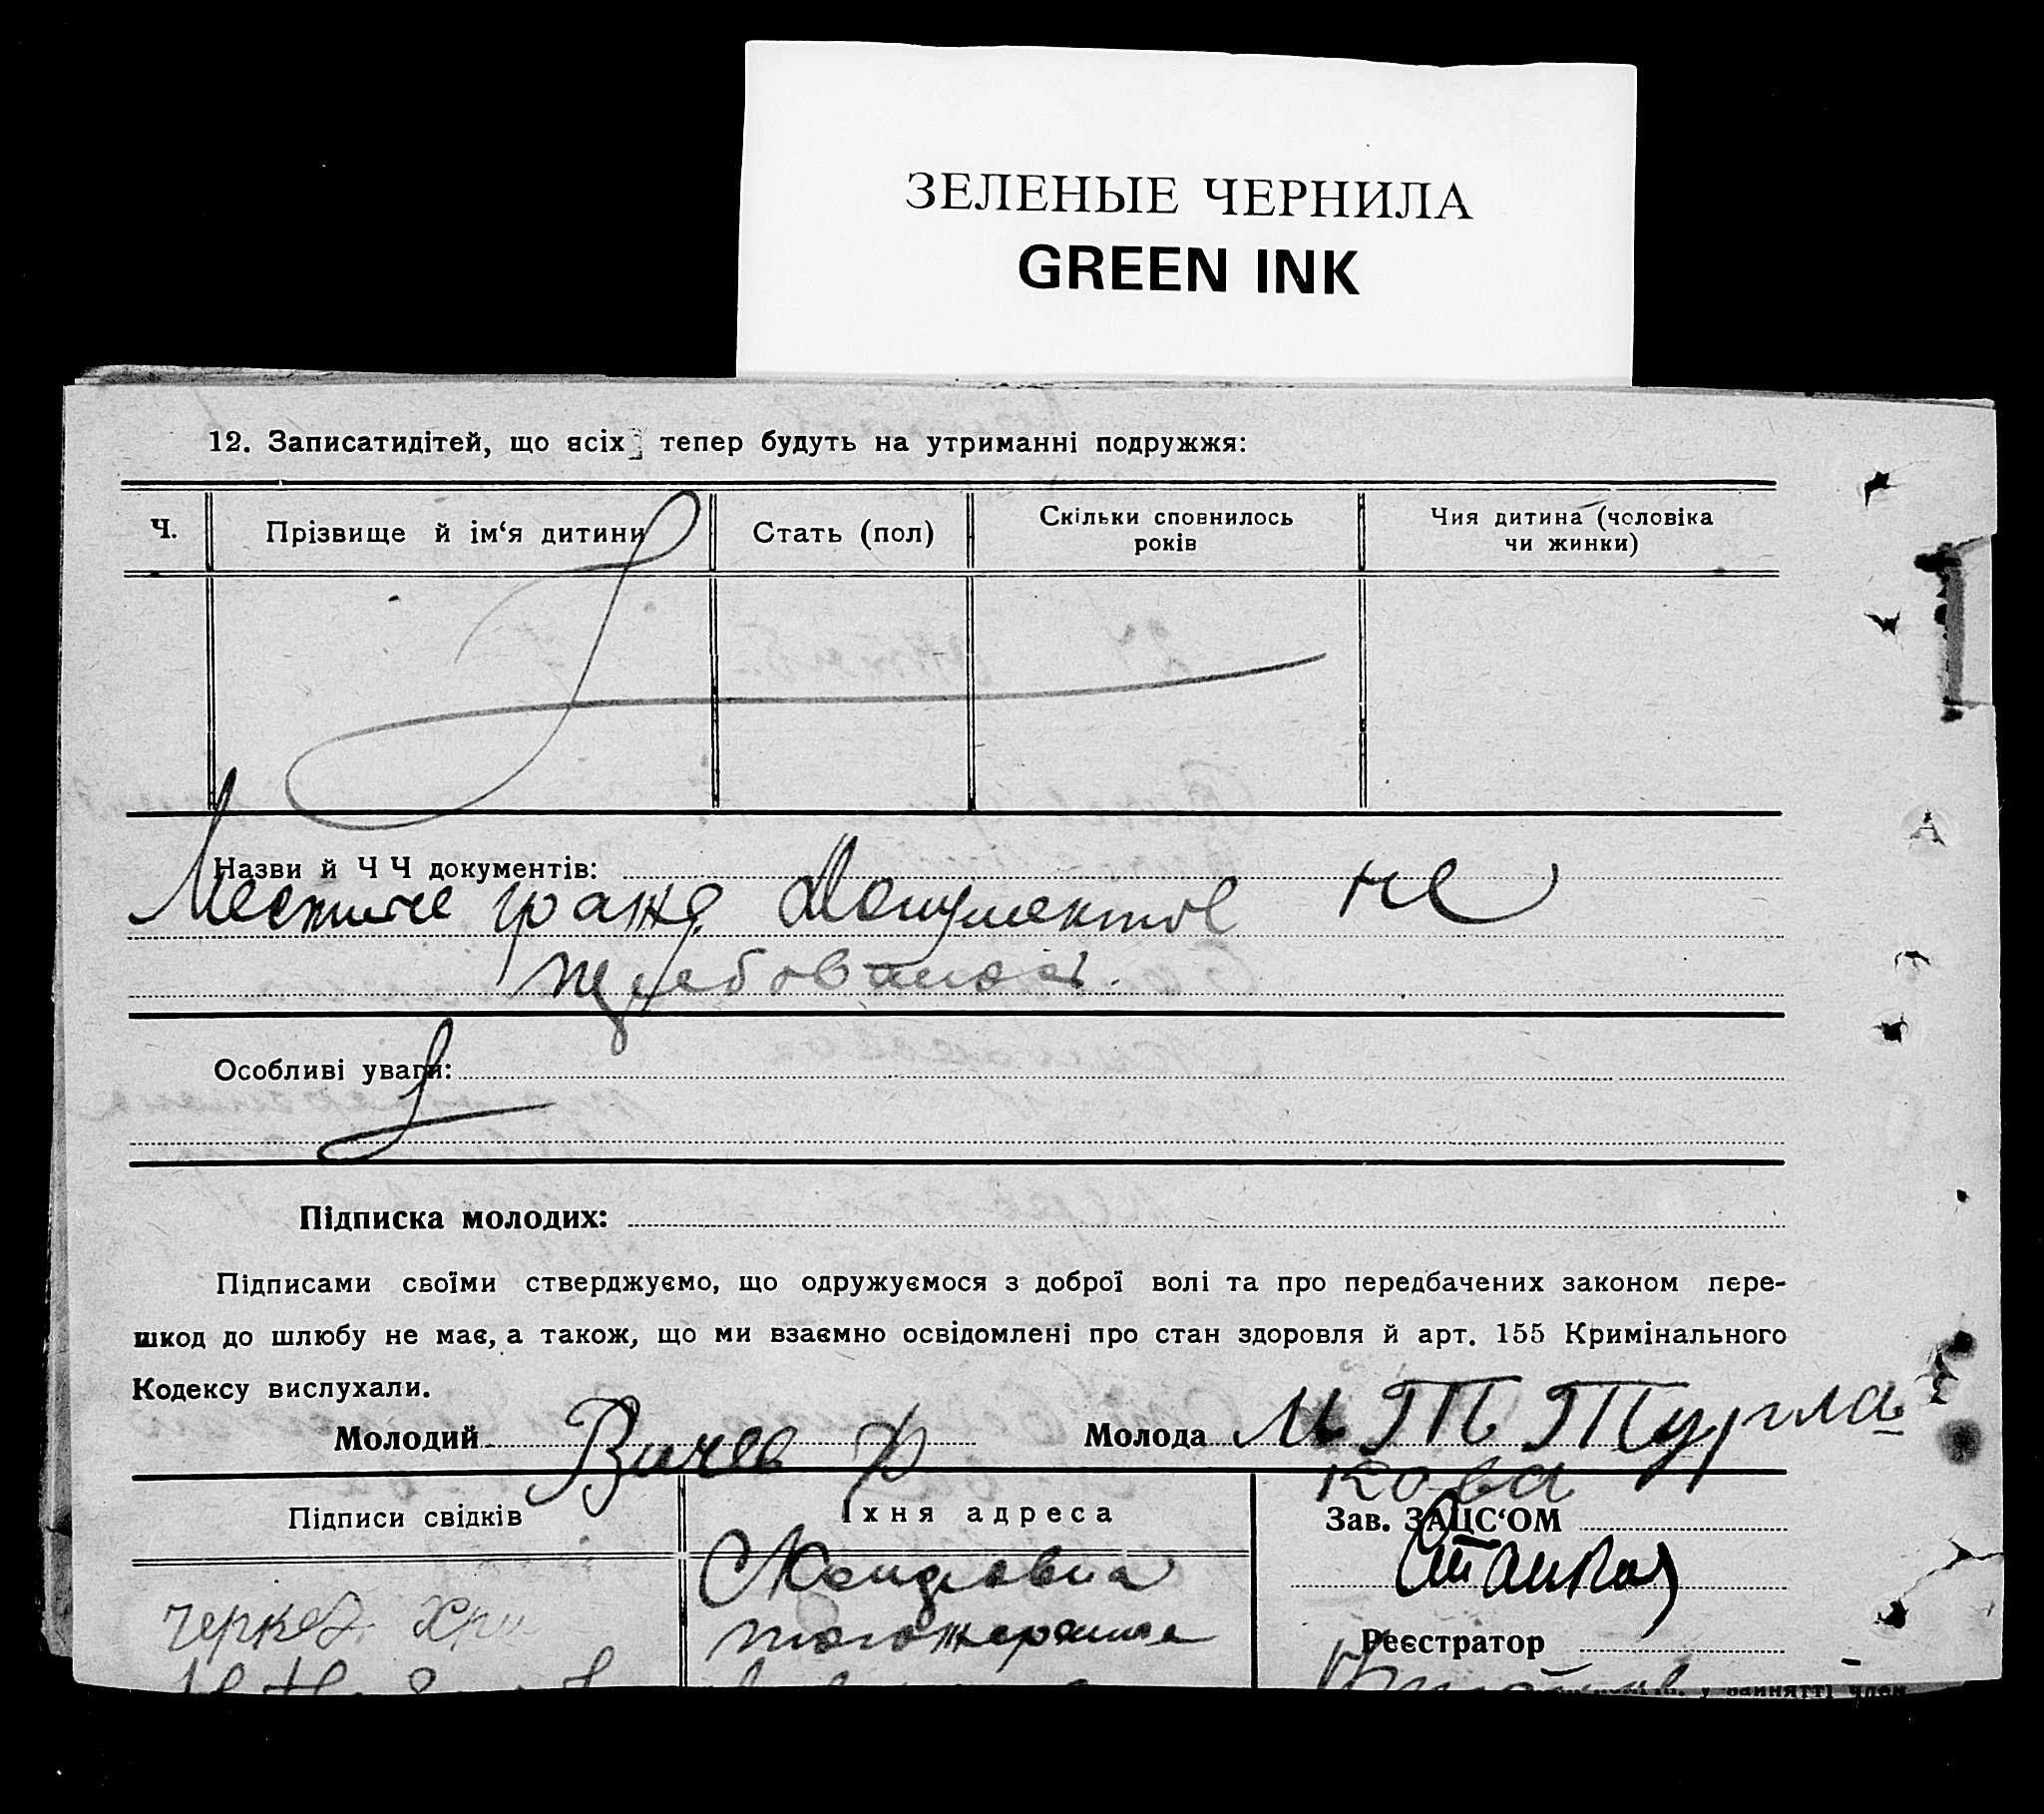 ЗЕЛЕНЫЕ ЧЕРНИЛА
GREEN INK
12. Записатидітей, що всіх тепер будуть на утриманні подружжя:
Ч.
Прізвище й ім‘я дитини
Стать (пол)
Скільки сповнилось
років
Чия дитина (чоловіка
чи жинки)
Назви й Ч Ч документів:
Местные гражд. Документов не
требовалось.
Особливі уваги:
Підписка молодих:
Підписами своїми стверджуємо, що одружуємося з доброї волі та про передбачених законом пере-
шкод до шлюбу не має, а також, що ми взаємно освідомлені про стан здоровля й арт. 155 Кримінального
Кодексу вислухали.
Молодий Вичев Д
Молода М Т Тургла
кова
Підписи свідків
Їхня адреса
Зав. ЗАЦС‘ОМ
Черкез. Хри
Реєстратор